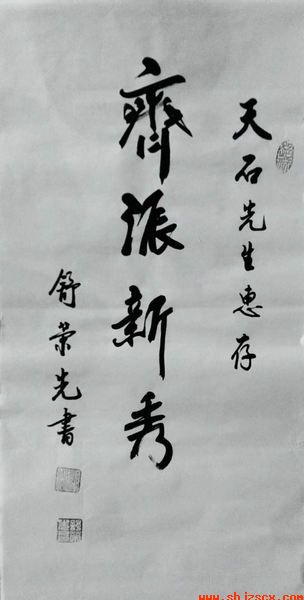 天石先生惠存
齊派新秀
舒荣光書
www.shjzscx.com